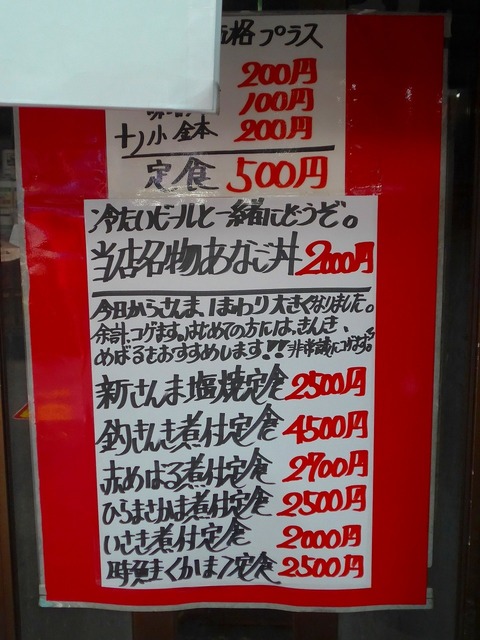 格プラス
200円
100円
小金本 200円
定食 500円
冷たいビールと一緒にどうぞ。
当店名物あなご丼 2000円
今日からさんま、1まわり大きくなりました。
余計、コゲます。はじめての方には、きんき、
めばるをおすすめします!! 非常識にコゲます。
新さんま塩焼定食 2500円
釣きんき煮付定食 4500円
赤めばる煮付定食 2700円
ひらまさかま煮付定食 2500円
いさき煮付定食 2000円
時鮭くかま定食 2500円